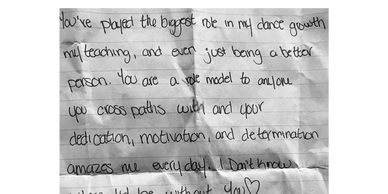 You've played the biggest role in my dance growth
my teaching, and even just being a better
person. You are a role model to anyone
you cross paths with and your
dedication, motivation, and determination
amazes me every day. I Don't know
without you♡